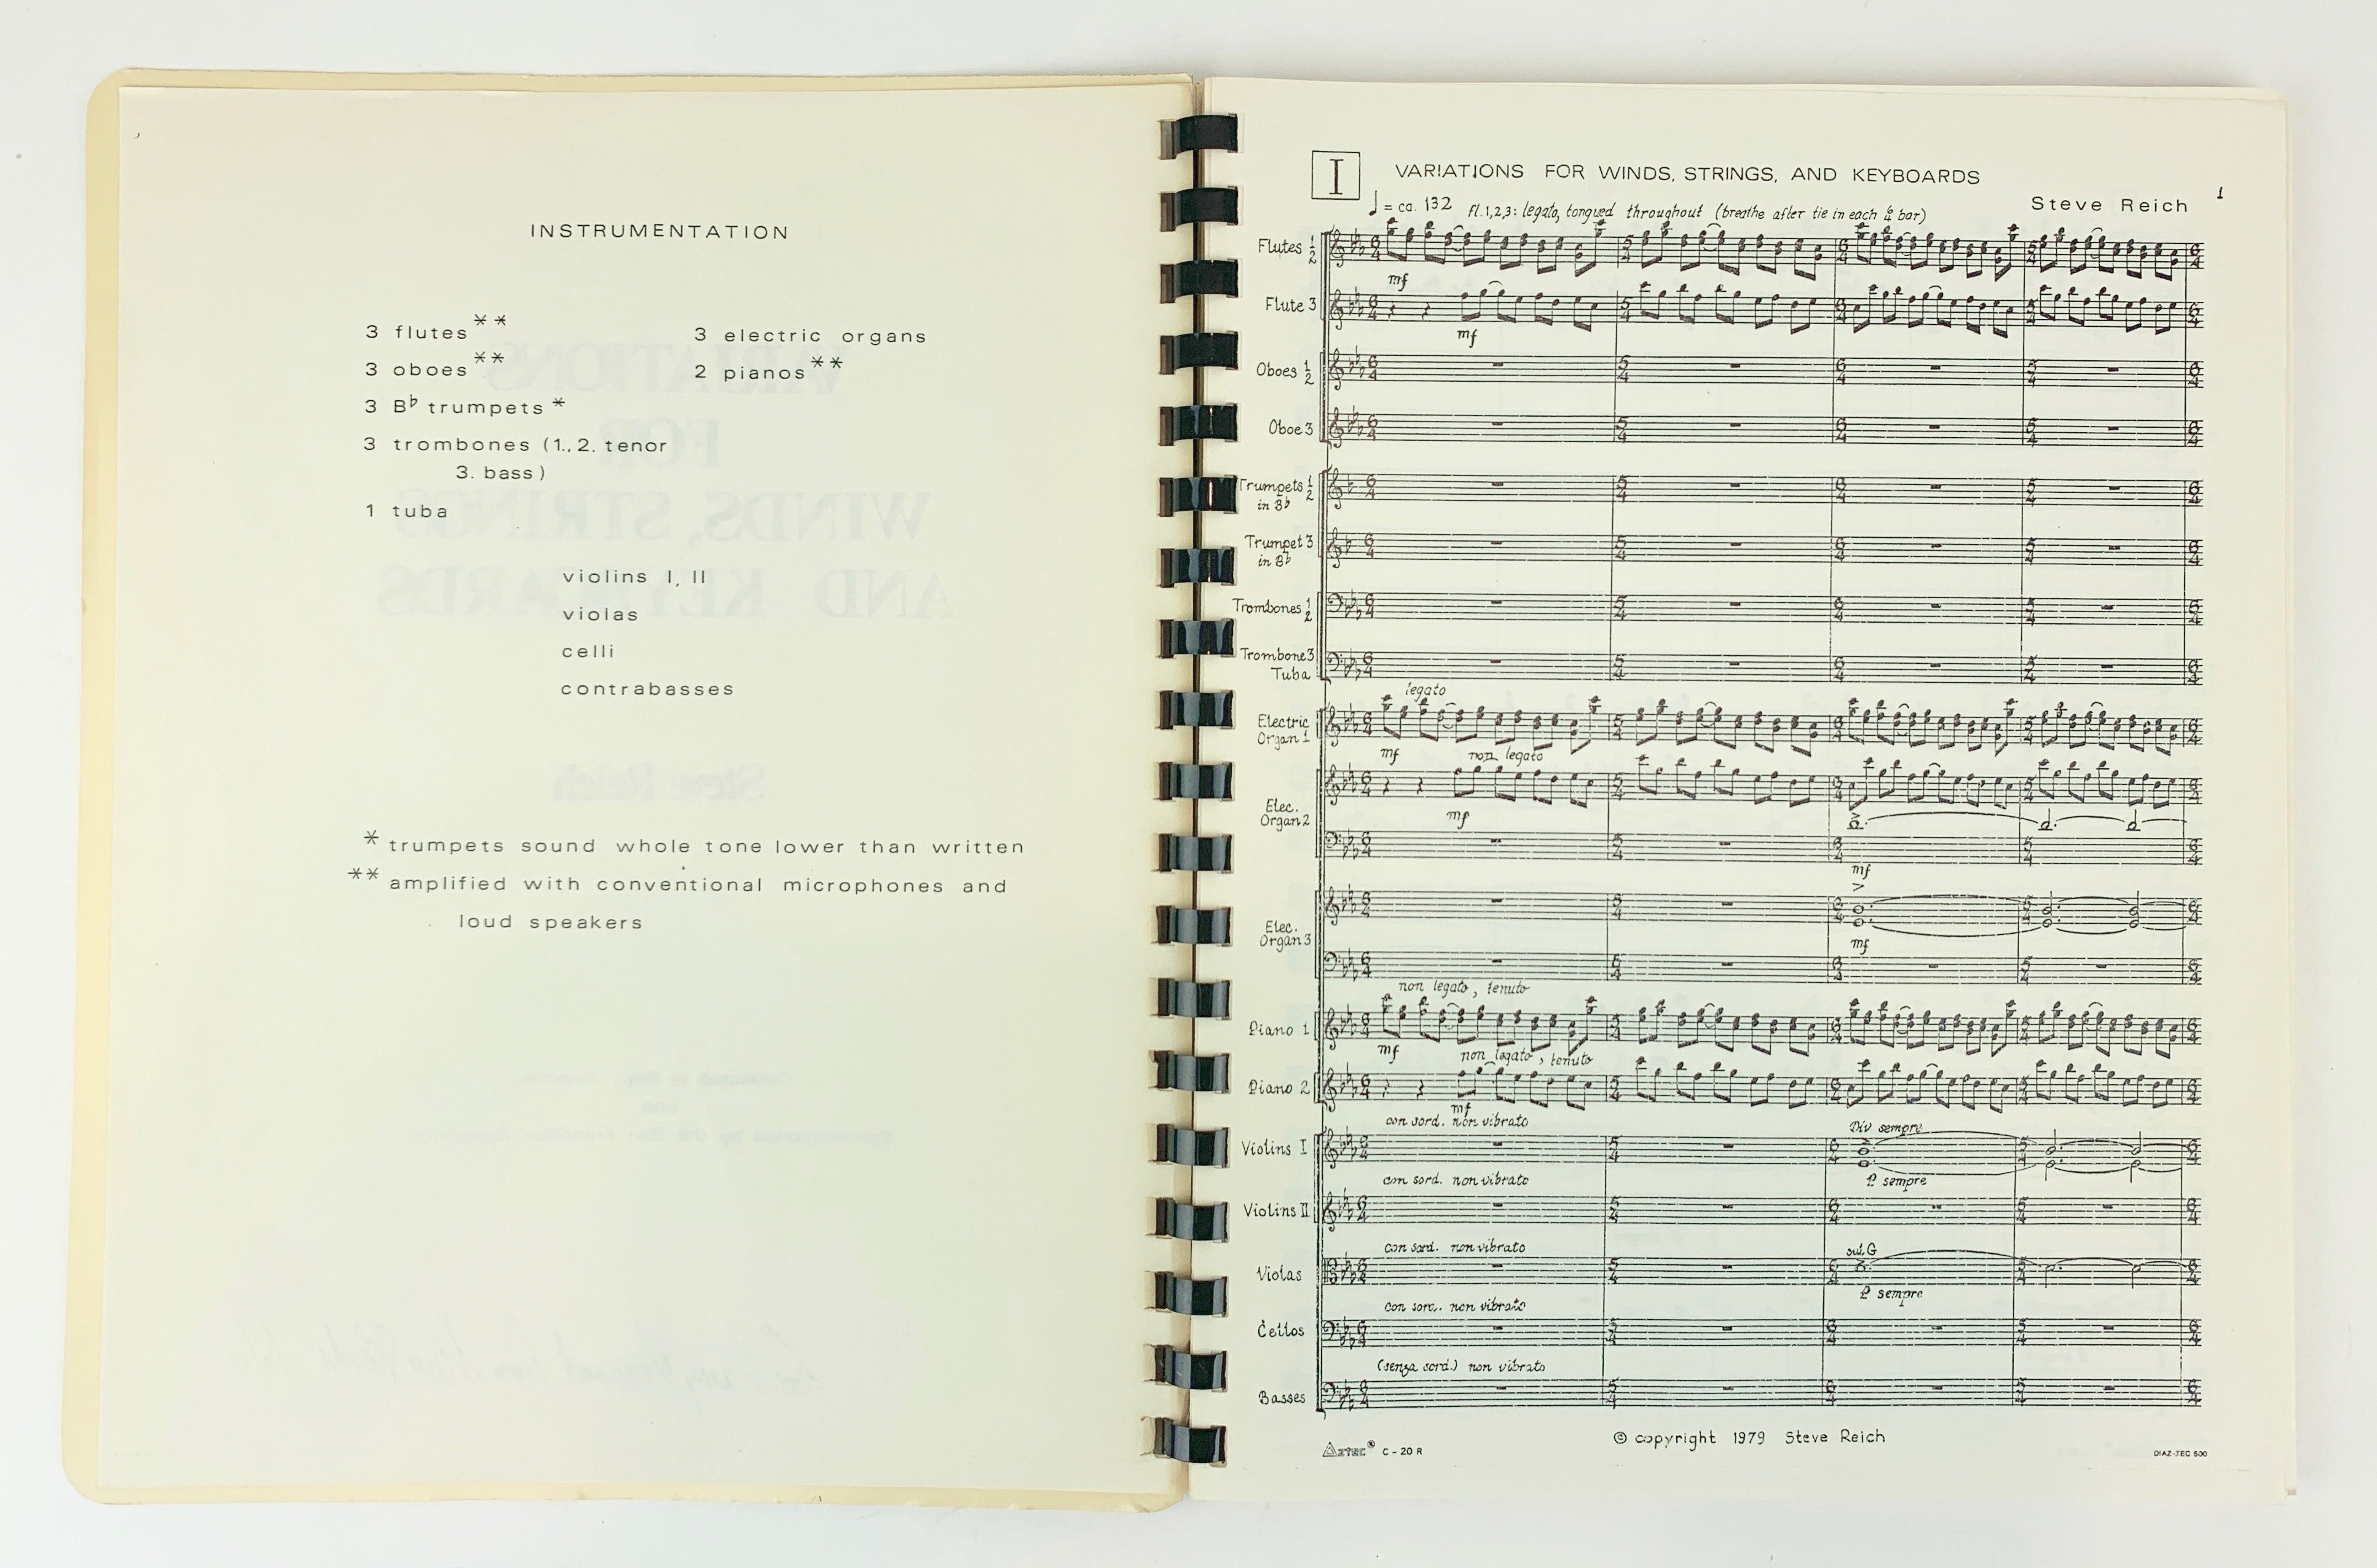 INSTRUMENTATION
3 flutes**
3 oboes**
3 B♭ trumpets*
3 trombones (1., 2. tenor
3. bass)
1 tuba
3 electric organs
2 pianos**
violins I, II
violas
celli
contrabasses
* trumpets sound whole tone lower than written
** amplified with conventional microphones and
loud speakers
I
VARIATIONS FOR WINDS, STRINGS, AND KEYBOARDS
1
Steve Reich
♩ = ca. 132 Fl. 1,2,3: legato, tongued throughout (breathe after tie in each 6/4 bar)
Flutes 1 2
mf
Flute 3
mf
Oboes 1 2
Oboe 3
Trumpets 1 2
in B♭
Trumpet 3
in B♭
Trombones 1 2
Trombone 3
Tuba
legato
Electric
Organ 1
mf
non legato
Elec.
Organ 2
mf
mf
Elec.
Organ 3
mf
non legato, tenuto
Piano 1
mf
non legato, tenuto
Piano 2
mf
con sord. non vibrato
Div sempre
Violins I
P sempre
con sord. non vibrato
Violins II
con sord. non vibrato
sul G
Violas
P sempre
con sord. non vibrato
Cellos
(senza sord.) non vibrato
Basses
© copyright 1979 Steve Reich
Aztec® C-20 R
DIAZ-TEC 500